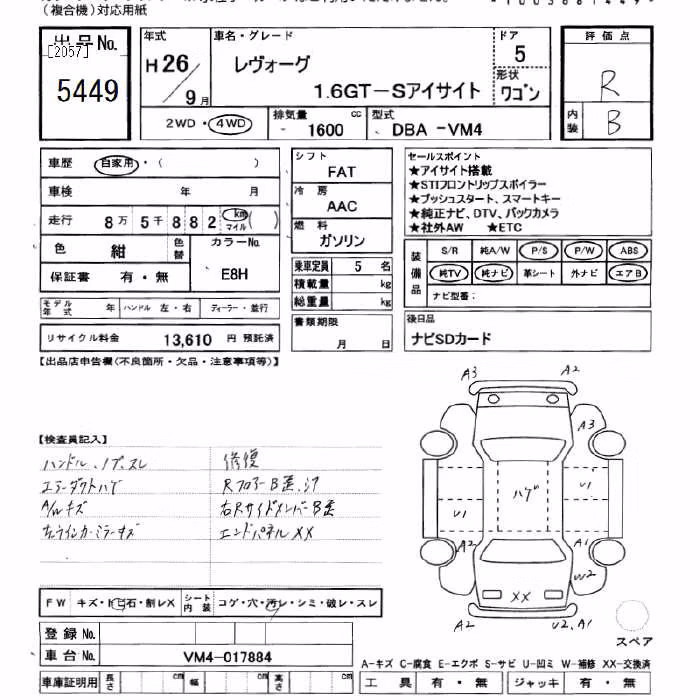 (複合機)対応用紙
出品No.
[2057]
5449
年式
H26/9月
車名・グレード
レヴォーグ
1.6GT-Sアイサイト
ドア
5
形状
ワゴン
評価点
R
内装
B
2WD・4WD
排気量
1600 cc
型式
DBA -VM4
車歴 自家用・( )
車検 年 月
走行 8万5千882 km マイル ( )
色 紺
色替
カラーNo.
E8H
保証書 有・無
モデル年式 年 ハンドル 左・右 ディーラー・並行
リサイクル料金 13,610 円 預託済
シフト
FAT
冷房
AAC
燃料
ガソリン
乗車定員 5 名
積載量 kg
総重量 kg
書類期限
月 日
セールスポイント
★アイサイト搭載
★STIフロントリップスポイラー
★プッシュスタート、スマートキー
★純正ナビ、DTV、バックカメラ
★社外AW ★ETC
装備品
S/R 純A/W P/S P/W ABS
純TV 純ナビ 革シート 外ナビ エアB
ナビ型番:
後日品
ナビSDカード
【出品店申告欄(不良箇所・欠品・注意事項等)】
【検査員記入】
ハンドル、ノブ、スレ
エアーダクトハゲ
A/Wキズ
左ウインカーミラーキズ
修復
RフロアーB歪、サ
右RサイドメンバーB歪
エンドパネルXX
A3
A2
A3
ハゲ
U1
U1
A2
A1
W2
XX
A2
U2、A1
スペア
FW キズ・トビ石・割レX
シート内装 コゲ・穴・汚レ・シミ・破レ・スレ
登録No.
車台No. VM4-017884
A-キズ C-腐食 E-エクボ S-サビ U-凹ミ W-補修 XX-交換済
車庫証明用 長さ cm 幅 cm 高さ cm
工具 有・無 ジャッキ 有・無